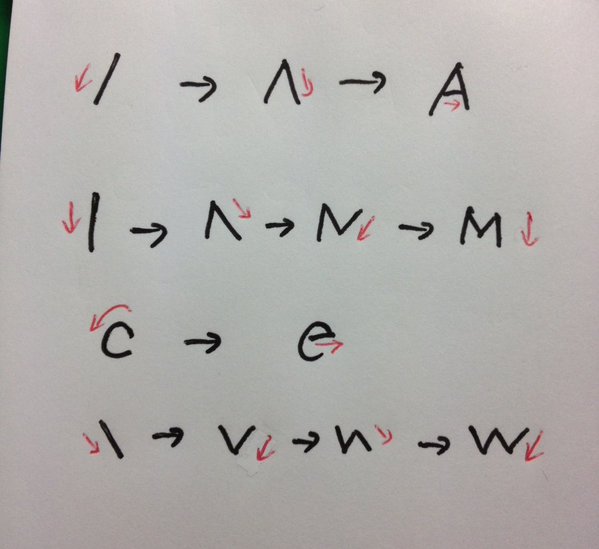 / → Λ → A
| → Λ → N → M
c → e
\ → V → И → W